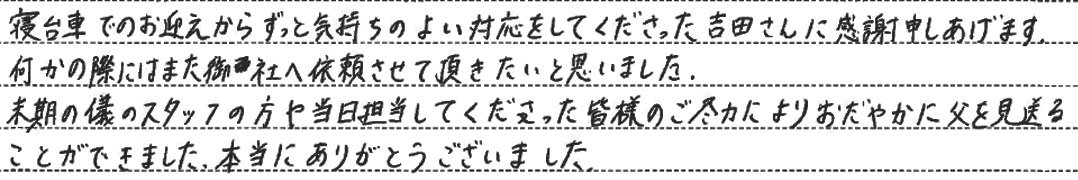 寝台車でのお迎えからずっと気持ちのよい対応をしてくださった吉田さんに感謝申しあげます。
何かの際にはまた御社へ依頼させて頂きたいと思いました。
末期の儀のスタッフの方や当日担当してくださった皆様のご尽力によりおだやかに父を見送る
ことができました。本当にありがとうございました。